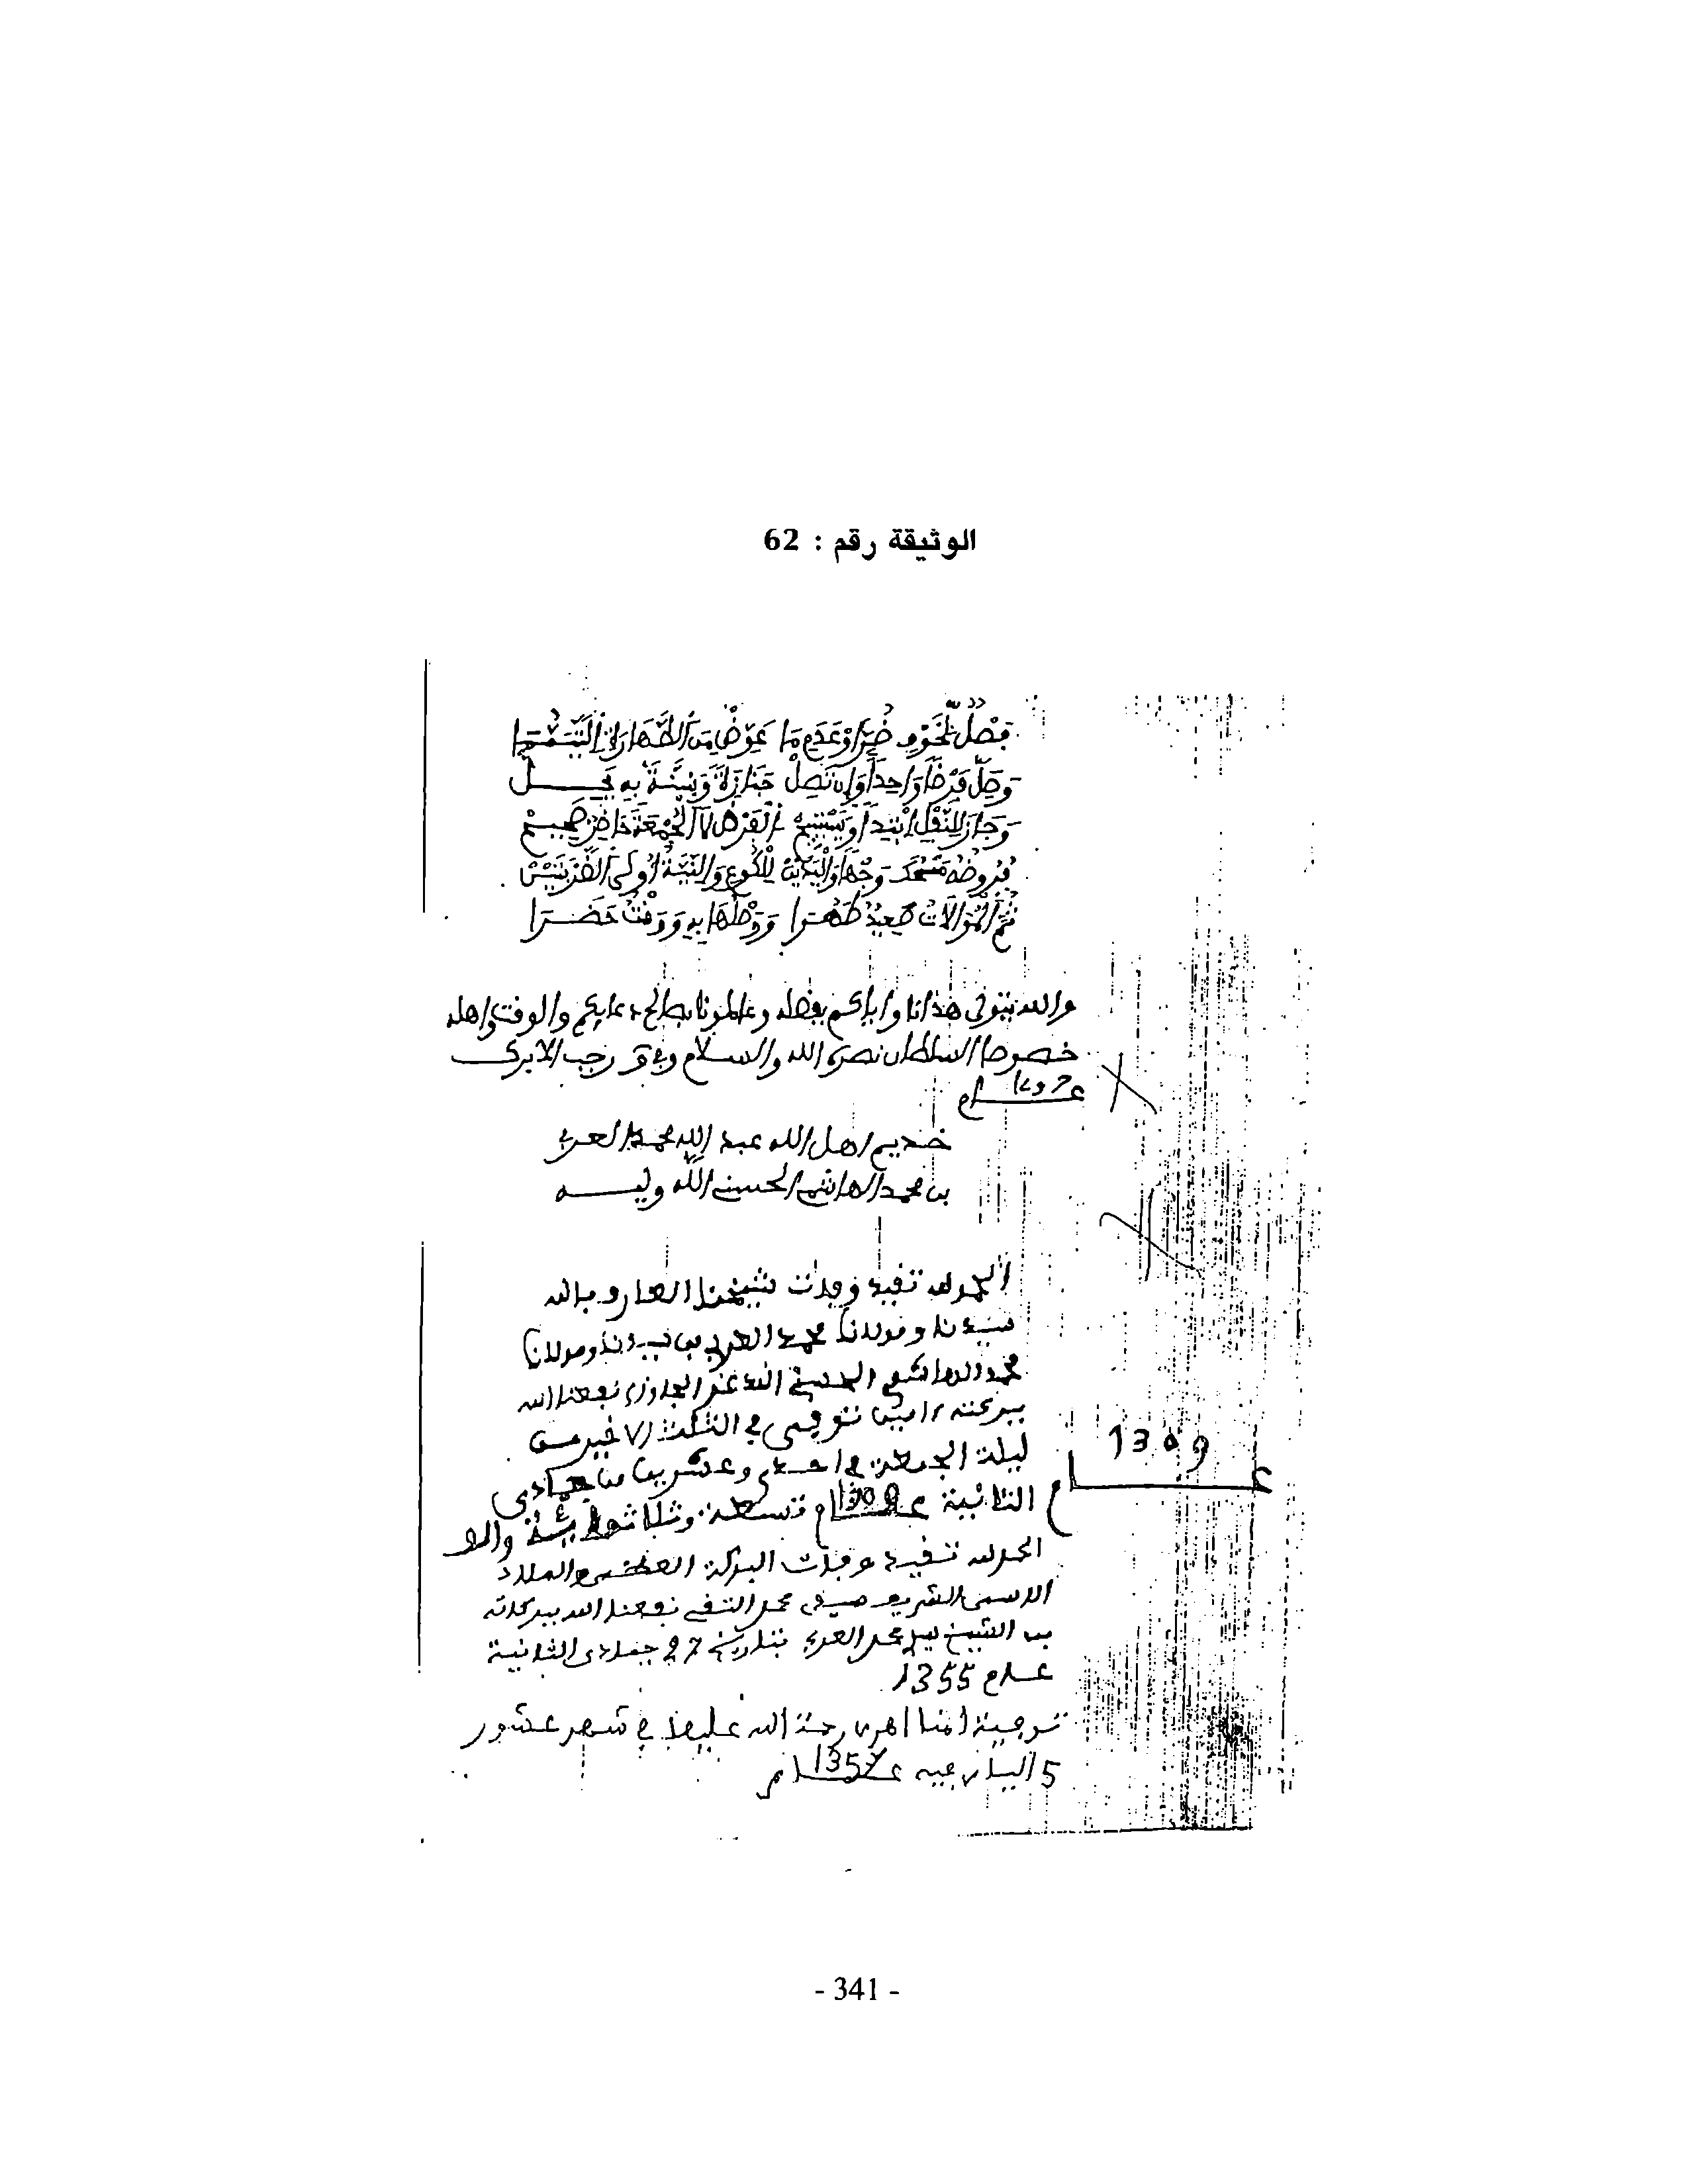 الوثيقة رقم : 62
فَصْلٌ لِخَوْفِ ضُرٍّ أَوْ عَدَمِ مَا عَوِّضْ مِنَ الطَّهَارَةِ التَّيَمُّمَا
وَصَلِّ فَرْضًا وَاحِدًا وَإِنْ تَصِلْ جَنَازَةً وَسُنَّةً بِهِ يَحِلْ
وَجَازَ لِلنَّفْلِ ابْتِدًا وَيَسْتَبِيحْ الْفَرْضَ لَا الْجُمُعَةَ حَاضِرٌ صَحِيحْ
فُرُوضُهُ مَسْحُكَ وَجْهًا وَالْيَدَيْنْ لِلْكُوعِ وَالنِّيَّةُ أُولَى الضَّرْبَتَيْنْ
ثُمَّ الْمُوَالَاةُ صَعِيدٌ طَهُرَا وَوَصْلُهَا بِهِ وَوَقْتٌ حَضَرَا
والله يتولى هدانا وإياكم بفضله وعاملونا بصالح دعايكم والوقت واهله
خصوصا السلطان نصره الله والسلام وفي رجب الابرك
عام
خديم اهل الله عبد الله محمد العربي
بن محمد الهاشمي الحسني الله وليه
الحمد لله تقييد وفات شيخنا العارف بالله
سيدنا ومولانا محمد العربي بن سيدنا ومولانا
محمد الهاشمي الحسني نفعنا الله
ببركته ءامين توفي في الثلث الاخير من
ليلة الجمعة في احدى وعشرين من جمادى
الثانية عام 1309 تسعة وثلاثمائة والف
1309
عام
الحمد لله تقييد وفات البركة العظمى والملاذ
الاسمى الشريف سيدي محمد التقي نفعنا الله ببركاته
بن الشيخ سيدي محمد العربي بتاريخ 27 جمادى الثانية
عام 1355
رحمة الله عليها في شهر عشور
5 عام
- 341 -